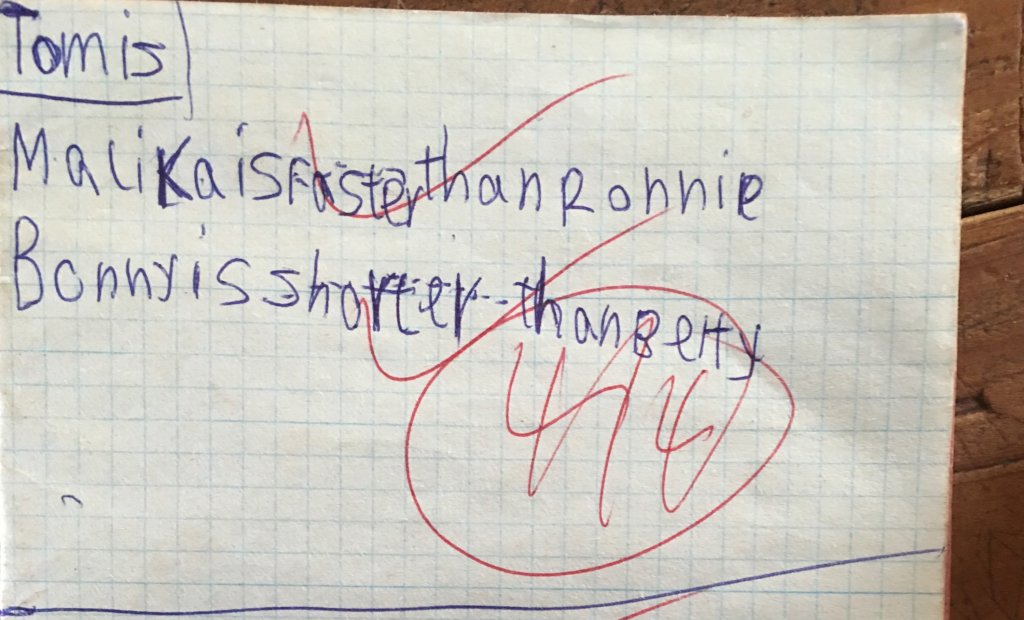 Tom is
Malika is faster than Ronnie
Bonny is shorter than Betty
4/4